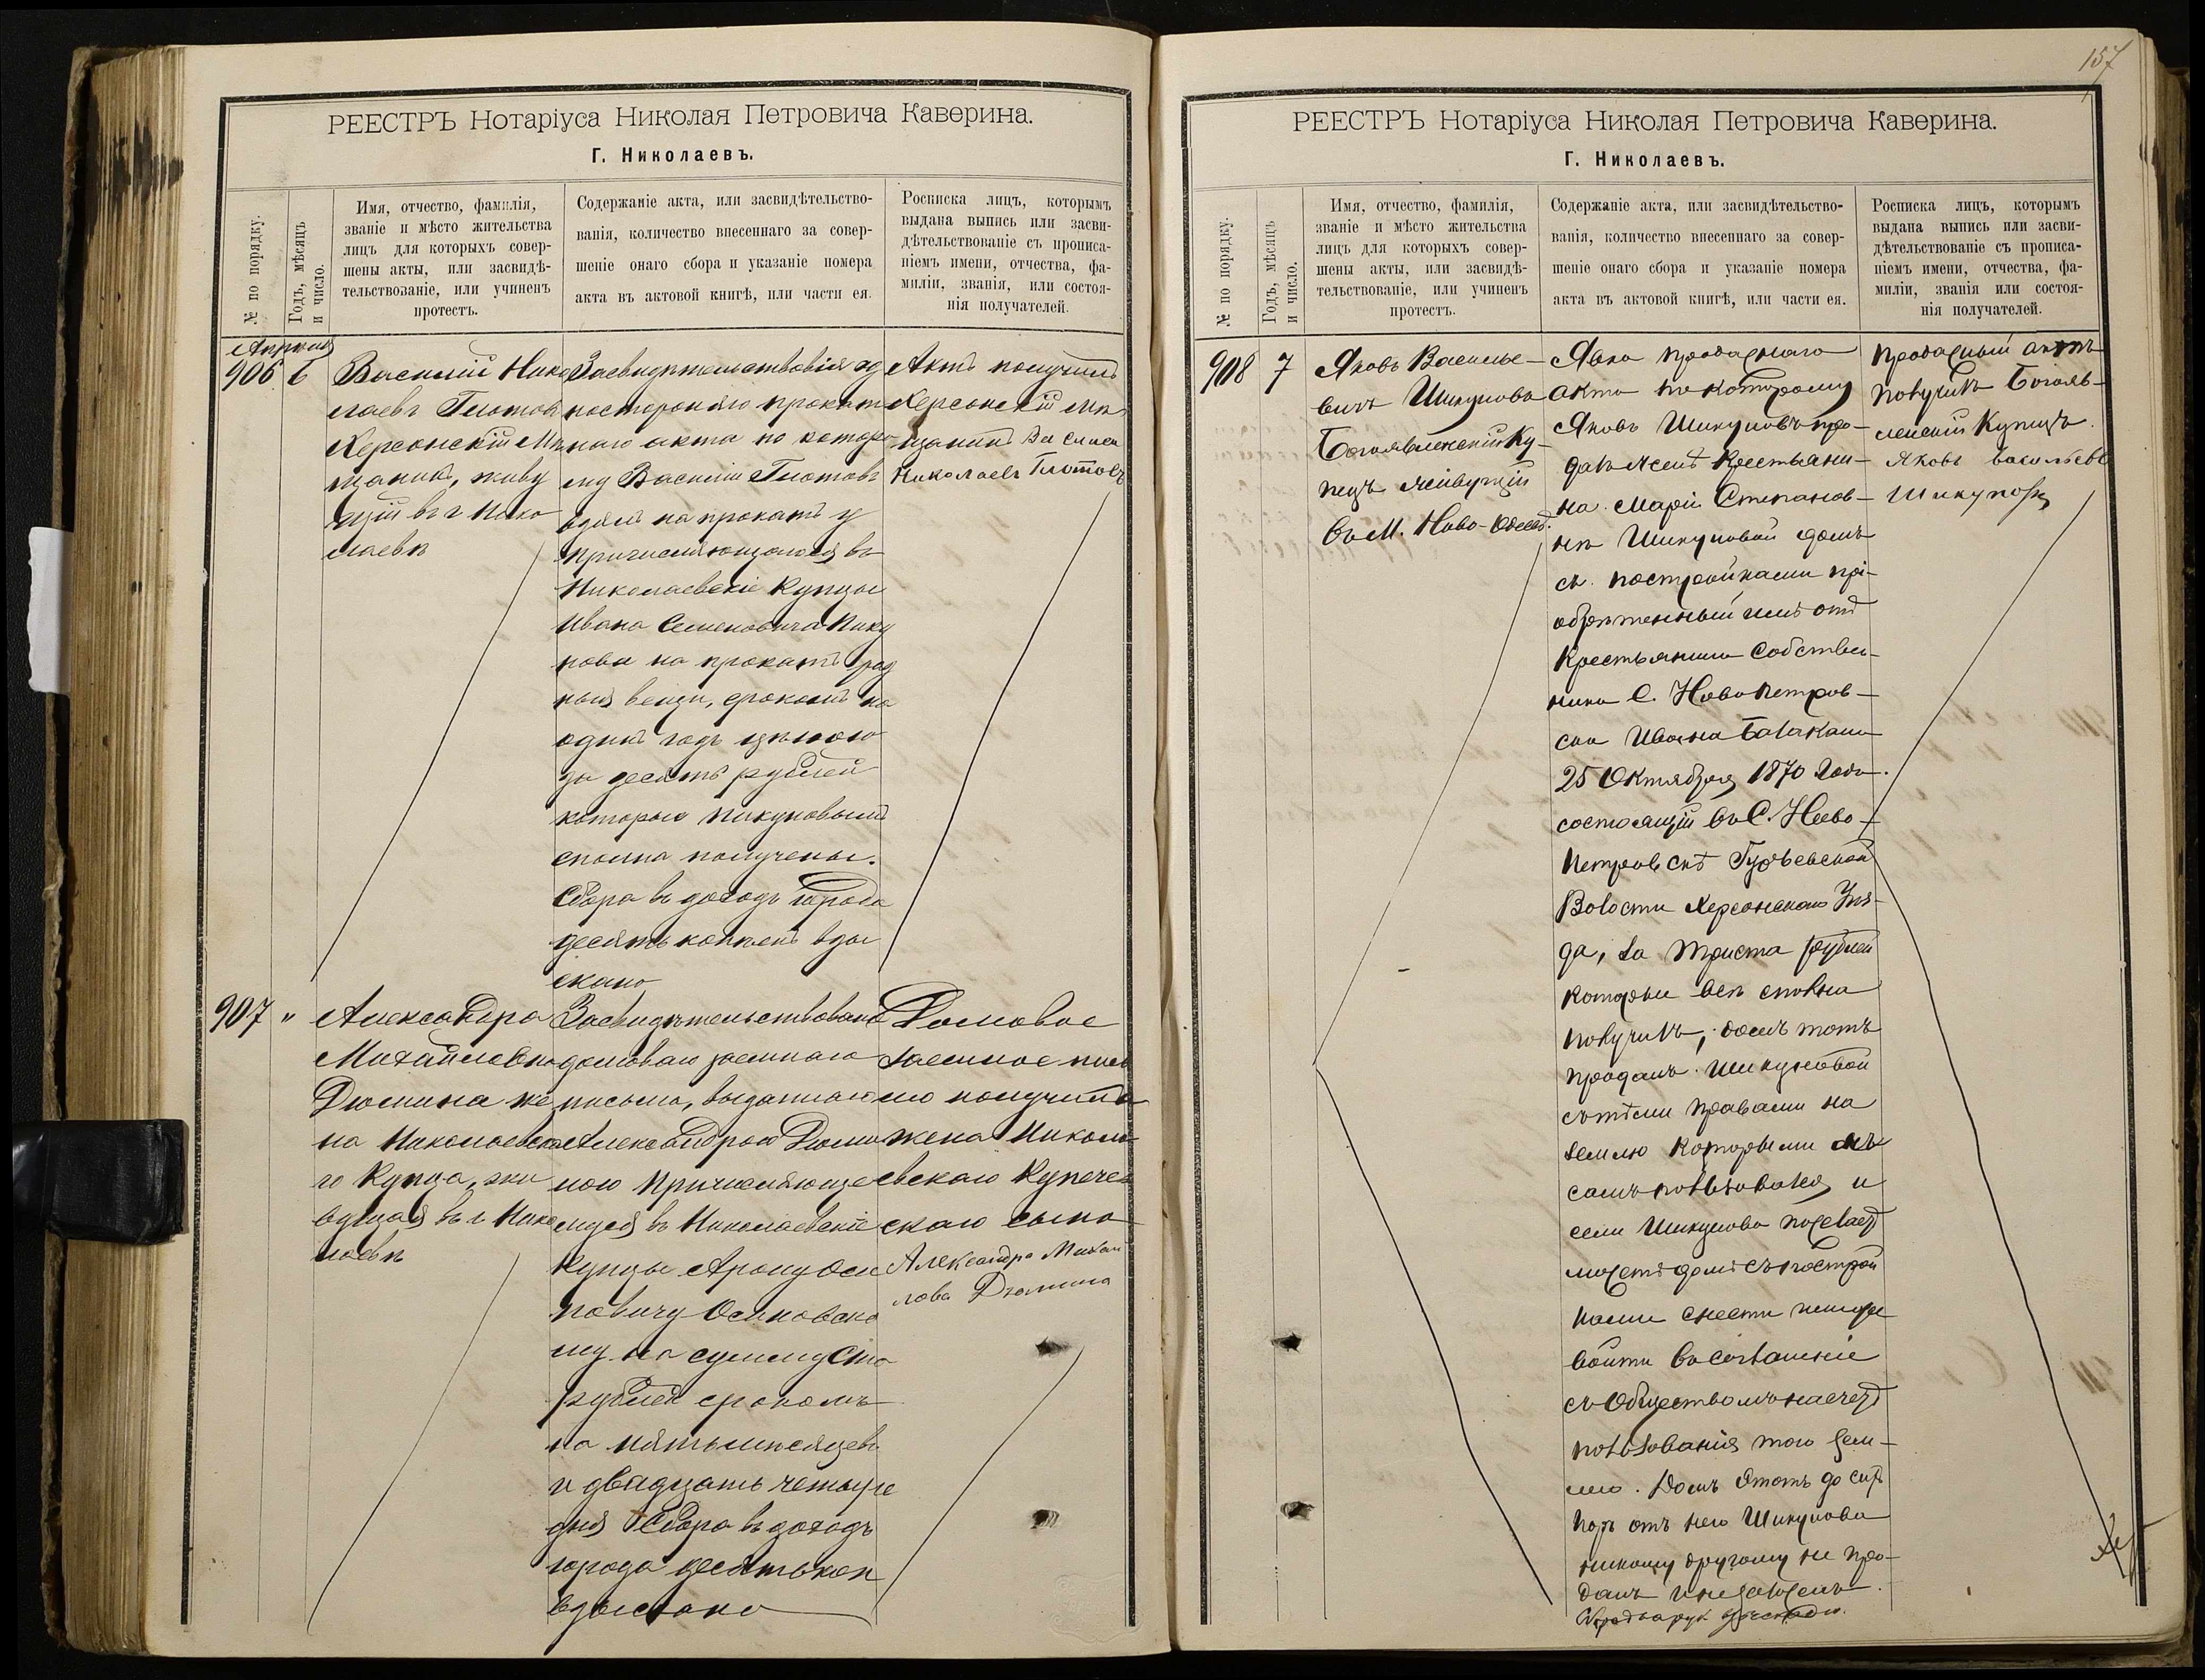 РЕЕСТРЪ Нотаріуса Николая Петровича Каверина.
Г. Николаевъ.
№ по порядку.
Годъ, мѣсяцъ
и число.
Имя, отчество, фамилія,
званіе и мѣсто жительства
лицъ для которыхъ совер-
шены акты, или засвидѣ-
тельствованіе, или учиненъ
протестъ.
Содержаніе акта, или засвидѣтельство-
ванія, количество внесеннаго за совер-
шеніе онаго сбора и указаніе номера
акта въ актовой книгѣ, или части ея.
Росписка лицъ, которымъ
выдана выпись или засви-
дѣтельствованіе съ прописа-
ніемъ имени, отчества, фа-
миліи, званія, или состоя-
нія получателей.
Апрѣля
906 6
Василій Нико
лаевъ Глотовъ
Херсонскій Мѣ
щанинъ, живу
щій въ г Нико
лаевѣ
посторонняго прокат
наго акта по которо
му Василій Глотовъ
взялъ на прокатъ у
причисляющагося въ
Николаевскіе Купцы
Ивана Семеновича Пику
нова на прокатъ раз
ныя вещи, срокомъ на
одинъ годъ цѣною
за десять рублей
которые Пикуновымъ
сполна получены.
Сбора въ доходъ города
десять копѣекъ взы
скано
Актъ получилъ
Херсонскій мѣ
щанинъ Василій
Николаевъ Глотовъ
907 "
Александра
Михайловна
Дюмина же
на Николаевска
го Купца, жи
вущая въ г Нико
лаевѣ
Засвидѣтельствованіе
домоваго заемнаго
письма, выданнаго
Александрою Дюми
ною Причисляюще
муся въ Николаевскіе
Купцы Арону Оси
повичу Осиновско
му на сумму Сто
рублей срокомъ
на пять мѣсяцевъ
и двадцать четыре
дня Сбора въ доходъ
города десять коп
взыскано
Домовое
заемное пись
мо получила
жена Никола
евскаго Купече
скаго сына
Александра Михай
лова Дюмина
157
РЕЕСТРЪ Нотаріуса Николая Петровича Каверина.
Г. Николаевъ.
№ по порядку.
Годъ, мѣсяцъ
и число.
Имя, отчество, фамилія,
званіе и мѣсто жительства
лицъ для которыхъ совер-
шены акты, или засвидѣ-
тельствованіе, или учиненъ
протестъ.
Содержаніе акта, или засвидѣтельство-
ванія, количество внесеннаго за совер-
шеніе онаго сбора и указаніе номера
акта въ актовой книгѣ, или части ея.
Росписка лицъ, которымъ
выдана выпись или засви-
дѣтельствованіе съ прописа-
ніемъ имени, отчества, фа-
миліи, званія или состоя-
нія получателей.
908 7
Яковъ Василье-
вичъ Шикуновъ
Богоявленскій Ку-
пецъ живущій
въ М. Ново-Одессѣ.
Явка продажнаго
акта по которому
Яковъ Шикуновъ про-
далъ женѣ Крестьяни-
на Маріи Степанов-
нѣ Шикуновой домъ
съ постройками прі-
обрѣтенный имъ отъ
Крестьянина Собствен-
ника С. Новопетров-
ска Ивана
25 Октября 1870 года
состоящій въ С. Ново-
Петровскѣ Гурьевской
Волости Херсонскаго Уѣз-
да, за триста рублей
которые всѣ сполна
получилъ, домъ тотъ
проданъ Шикуновой
съ тѣми правами на
землю которыми онъ
самъ пользовался и
если Шикунова пожелаетъ
можетъ домъ съ построй
ками снести или же
войти въ соглашеніе
съ Обществомъ на счетъ
пользованія тою зем-
лею. Домъ этотъ до сихъ
поръ отъ него Шикунова
никому другому не про-
данъ и не заложенъ.
Продажный актъ
получилъ Богояв-
ленскій Купецъ
Яковъ Васильевъ
Шикуновъ